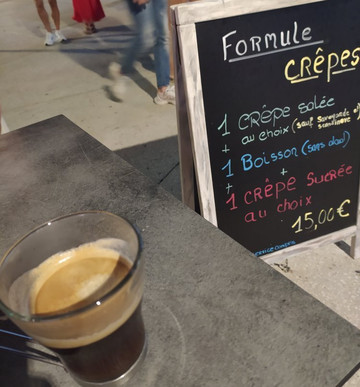 Formule
Crêpes
1 Crêpe salée
+ au choix (sauf Savoyarde
scandinave)
1 Boisson (sans alcool)
+ +
1 Crêpe Sucrée
au choix
15,00€
SERVICE COMPRIS